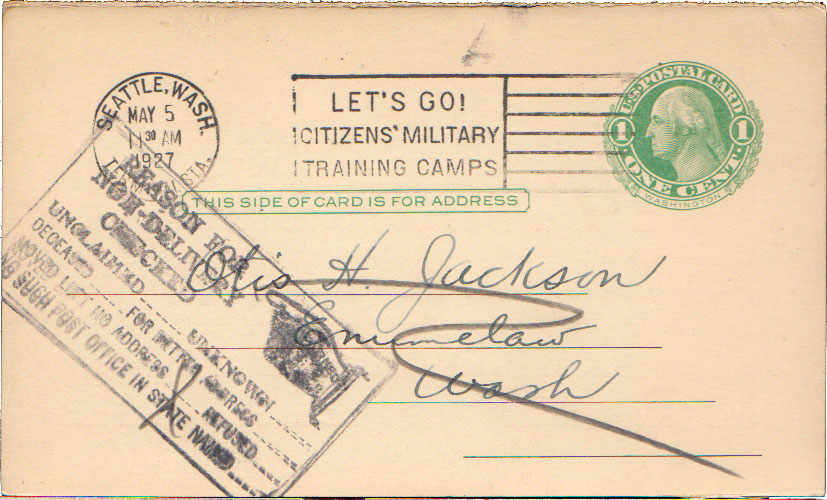 SEATTLE, WASH.
MAY 5
11 30 AM
1927
TERMINAL STA.
LET'S GO!
CITIZENS' MILITARY
TRAINING CAMPS
U.S. POSTAL CARD
1 1
ONE CENT.
WASHINGTON
THIS SIDE OF CARD IS FOR ADDRESS
REASON FOR
NON-DELIVERY
CHECKED
UNCLAIMED UNKNOWN
DECEASED FOR BETTER ADDRESS
MOVED LEFT NO ADDRESS REFUSED
NO SUCH POST OFFICE IN STATE NAMED
Otis H. Jackson
Enumclaw
Wash